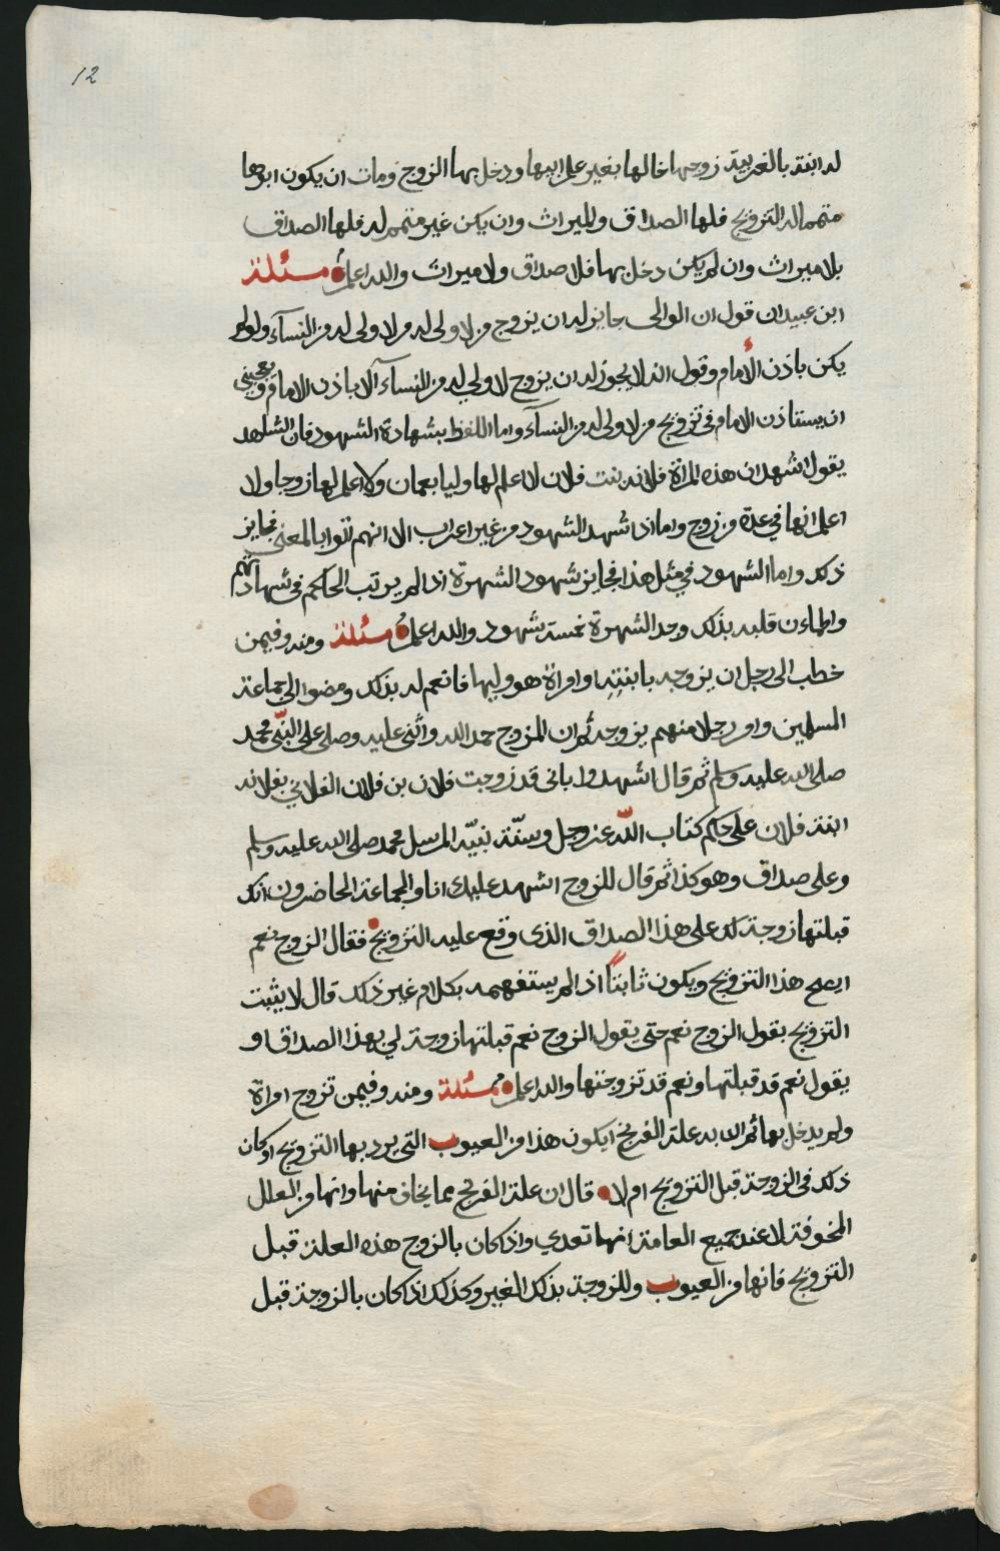 12
له ابنة بالغربية زوجها خالها بغير علم ابيها ودخل بها الزوج ومات ان يكون ابوها
متمما له التزويج فلها الصداق والميراث وان يكن غير متمم له فلها الصداق
بلا ميراث وان لم يكن دخل بها فلا صداق ولا ميراث والله اعلم مسئلة
ابن عبيدان قول ان الوالى جايز له ان يزوج من لا ولى له من لا ولى له من النسآء ولو لم
يكن باذن الأمام وقول انه لا يجوز له ان يزوج لا ولي له من النسآء الا باذن الامام ويعجبنى
ان يستاذن الامام فى تزويج من لا ولى له من النسآء واما اللفظ بشهادة الشهود فان الشاهد
يقول اشهد ان هذه المراة فلانه بنت فلان لا اعلم لها وليا بعمان ولا اعلم لها زوجا ولا
اعلم انها في عدة من زوج واما اذا شهد الشهود من غير اعراب الا انهم اتوا بالمعنى فجايز
ذلك واما الشهود في مثل هذا فجايز شهود الشهرة اذا لم يرتب الحاكم فى شهادتهم
واطماءن قلبه بذلك وحد الشهرة خمسة شهود والله اعلم مسئلة ومنه وفيمن
خطب الى رجل ان يزوجه بابنته او امراة هو وليها فانعم له بذلك ومضوا الى جماعة
المسلمين وامر رجلا منهم يزوجه ثم ان المزوج حمد الله واثنى عليه وصلى على النبّى محمد
صلى الله عليه وسلم ثم قال اشهدوا بانى قد زوجت فلان بن فلان الفلاني بفلانه
ابنة فلان على حكم كتاب اللّه عز وجل وسنّة نبيّه المرسل محمد صلى الله عليه وسلم
وعلى صداق وهو كذا ثم قال للزوج اشهد عليك انا والجماعة الحاضرون انك
قبلتها زوجة لك على هذا الصداق الذى وقع عليه التزويج فقال الزوج نعم
ايصح هذا التزويج ويكون ثابتاً اذا لم يستفهمه بكلام غير ذلك قال لا يثبت
التزويج بقول الزوج نعم حتى يقول الزوج نعم قبلتها زوجة لي بهذا الصداق او
يقول نعم قد قبلتها ونعم قد تزوجتها والله اعلم مسئلة ومنه وفيمن تزوج امراة
ولم يدخل بها ثم الله به علة الفرنج ايكون هذا من العيوب التى يرد بها التزويج او كان
ذلك فى الزوجة قبل التزويج ام لا قال ان علة الفرنج مما يخاف منها وانها من العلل
المخوفة لا عند جميع العامة انها تعدي واذا كان بالزوج هذه العلة قبل
التزويج فانها من العيوب وللزوجة بذلك الغير وكذلك اذا كان بالزوجة قبل